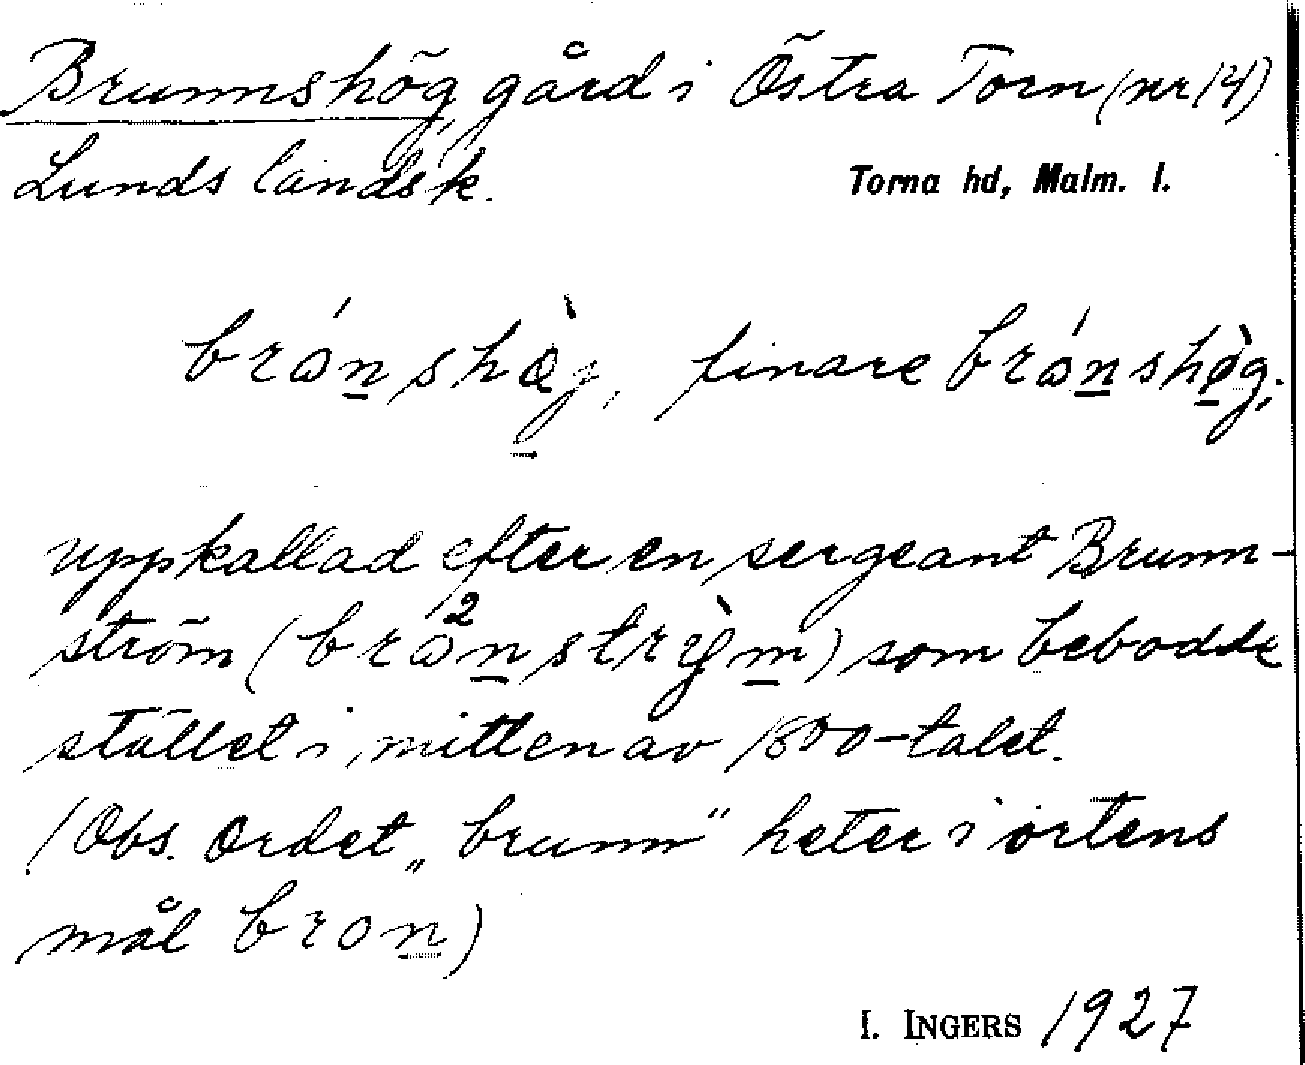 Brunnshög, gård i Östra Torn (nr 14)
Lunds landsk.
Torna hd, Malm. l.
brón̲shæ̀j̲, finare brón̲shø̲̀g;
uppkallad efter en sergeant Brunn-
ström (bro²n̲strỳm̲) som bebodde
stället i mitten av 1800-talet.
(Obs. Ordet „brunn” heter i ortens
mål bron̲)
I. INGERS 1927